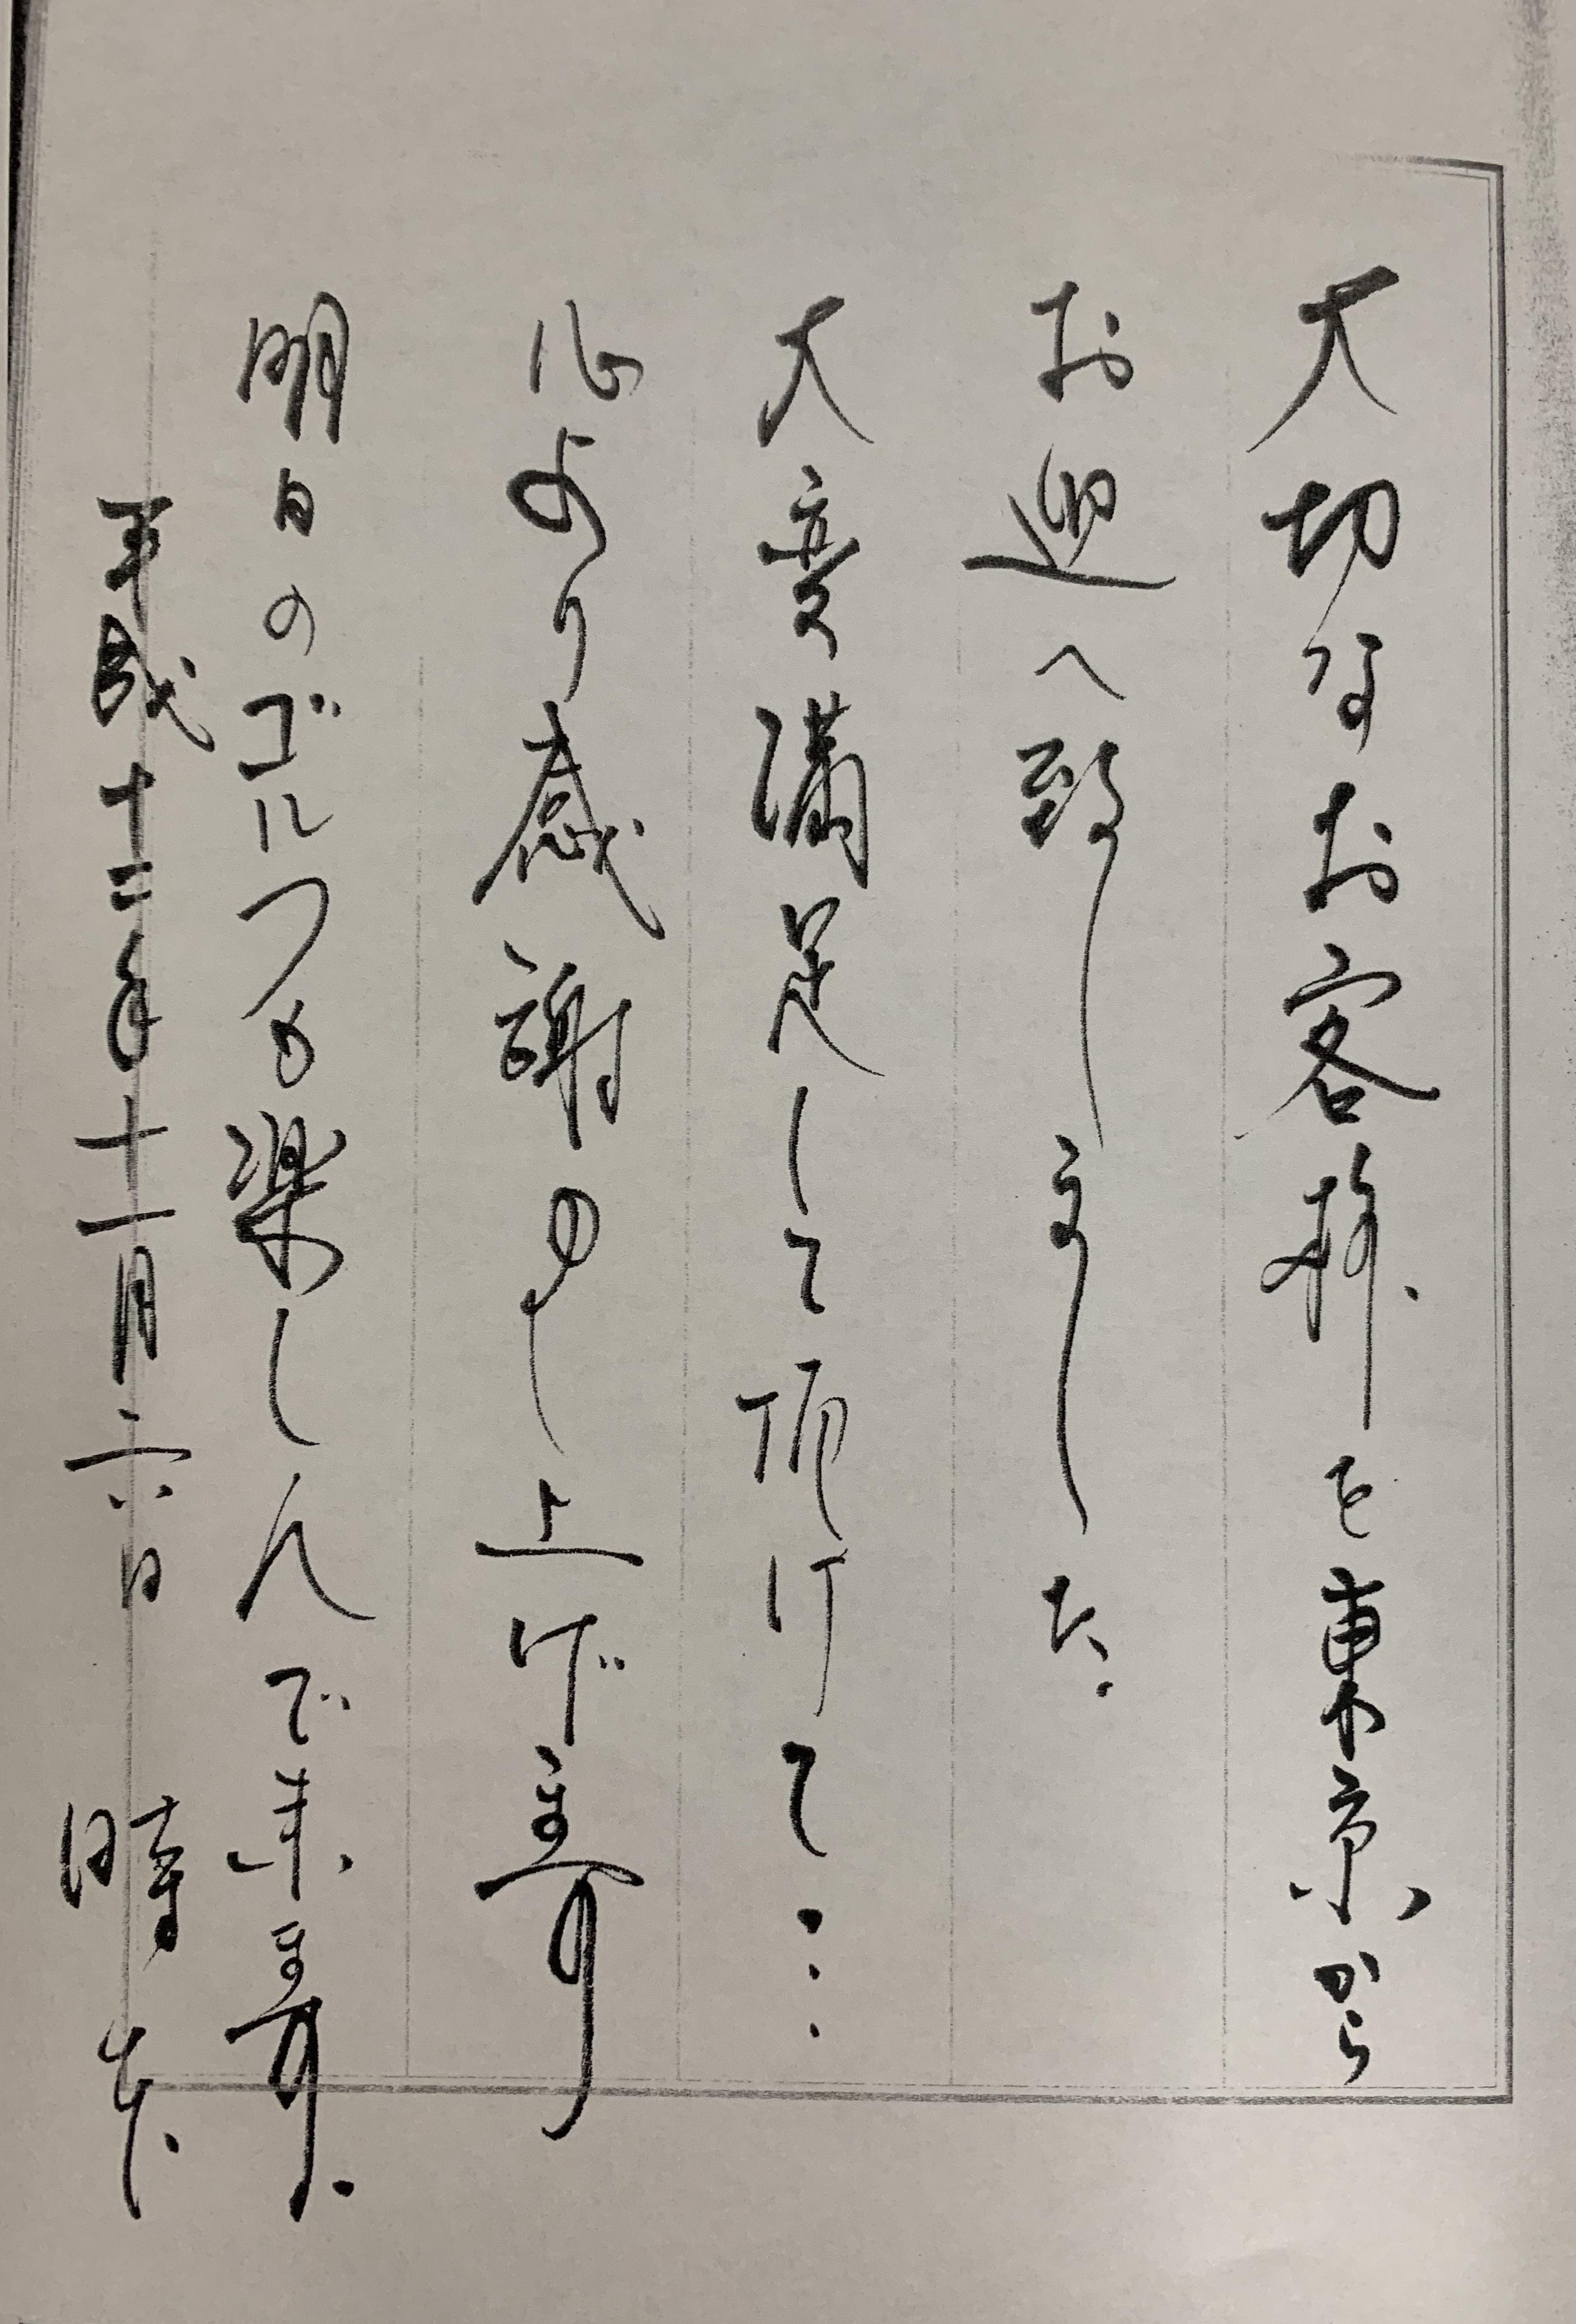 大切なお客様を東京から
お迎へ致しました.
大変満足して頂けて…
心より感謝申し上げます
明日のゴルフも楽しんで来ます.
平成十二年十一月二六日